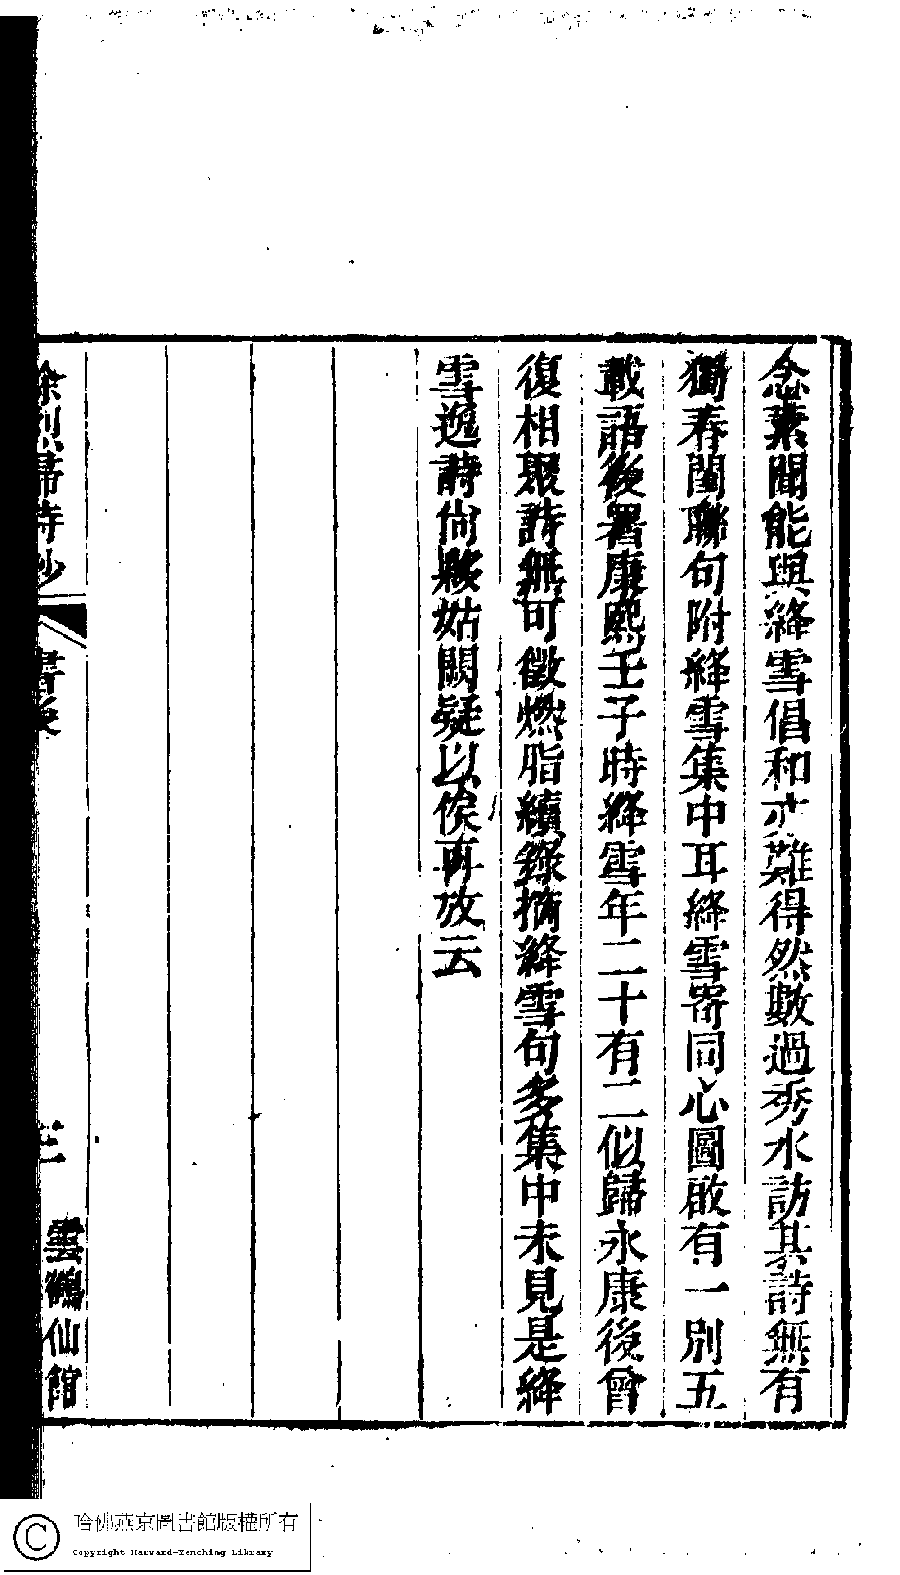 念素聞能與絳雪倡和尤難得然數過秀水訪其詩無有
獨春閨聯句附絳雪集中耳絳雪寄同心圖啟有一別五
載語後署康熙壬子時絳雪年二十有二似歸永康後曾
復相聚詩無可徵燃脂續錄摘絳雪句多集中未見是絳
雪逸詩尚夥姑闕疑以俟再攷云
徐烈婦詩鈔
書後
三
雲鶴仙館
哈佛燕京圖書館版權所有
Copyright Harvard-Yenching Library